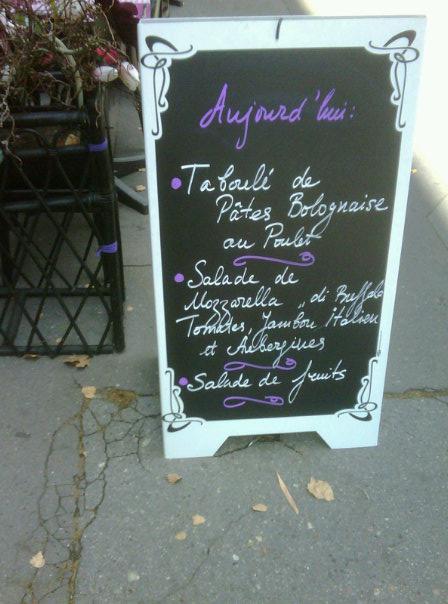 Aujourd'hui:
• Taboulé de
Pâtes Bolognaise
au Poulet
• Salade de
Mozzarella „di Buffala
Tomates, Jambon Italien
et Aubergines
• Salade de fruits